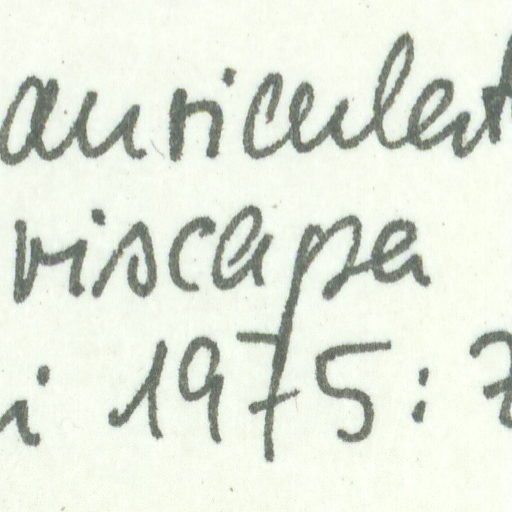 auriculat
viscapa
i 1975: 7